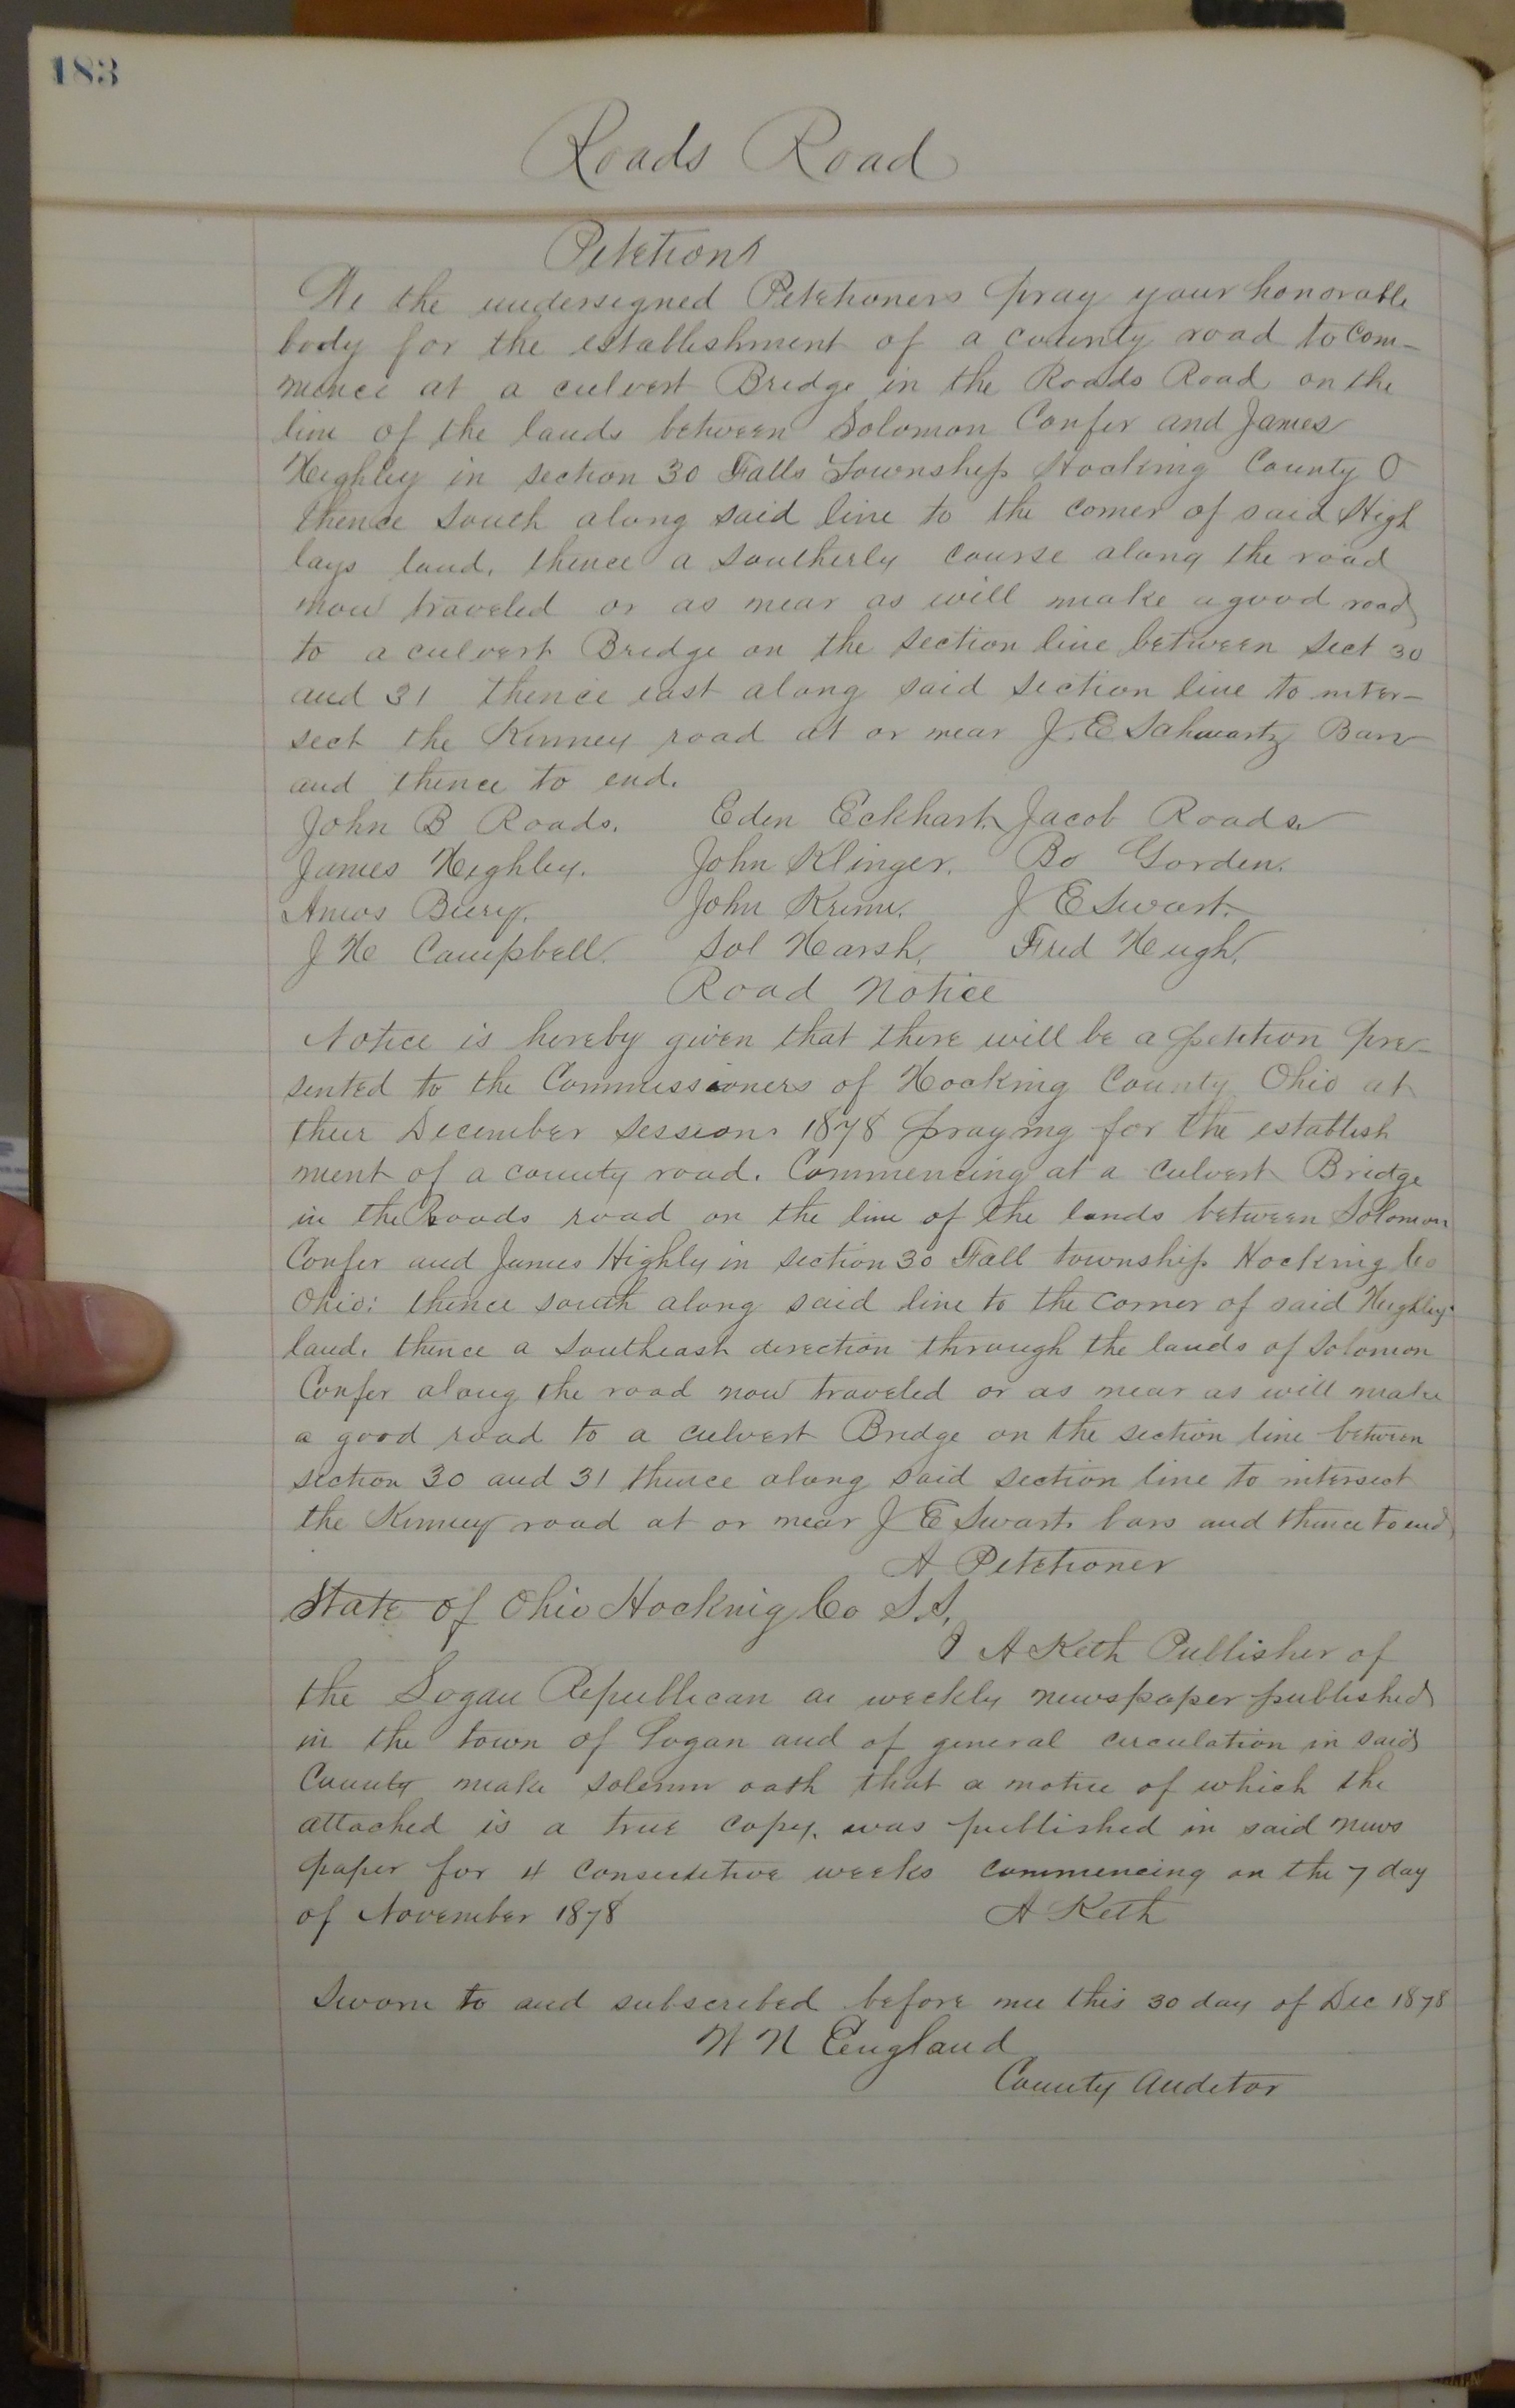 183
Roads Road
Petition
We the undersigned Petetioners pray your honorable
body for the establishment of a county road to Com-
mence at a culvert Bridge in the Roads Road on the
line of the lands between Solomon Confer and James
Heighley in section 30 Falls Township Hocking County O
thence South along said line to the corner of said High
lays land, thence a Southerly course along the road
now traveled or as near as will make a good road
to a culvert Bridge on the section line between Sect 30
and 31 thence east along said section line to inter-
sect the Kinney road at or near J. E Schwartz Barn
and thence to end.
John B Roads. Eden Eckhart. Jacob Roads.
James Heighley. John Klinger. Bo Gorden.
Amos Beery. John Krinn. J E Swart.
J H Campbell. Sol Harsh. Fred Heigh.
Road Notice
Notice is hereby given that there will be a petition pre-
sented to the Commissioners of Hocking County Ohio at
their December Session 1878 praying for the establish
ment of a county road. Commencing at a culvert Bridge
in the Roads road on the line of the lands between Solomon
Confer and James Highly in section 30 Fall township Hocking Co
Ohio: thence south along said line to the corner of said Heighleys
land, thence a Southeast direction through the lands of Solomon
Confer along the road now traveled or as near as will make
a good road to a culvert Bridge on the section line between
section 30 and 31 thence along said section line to intersect
the Kinney road at or near J E Swarts bars and thence to end
A Petetioner
State of Ohio Hocking Co S.S.
I A Keth Publisher of
the Logan Republican a weekly newspaper published
in the town of Logan and of general circulation in said
County make solemn oath that a notice of which the
attached is a true copy, was published in said news
paper for 4 consecutive weeks commencing on the 7 day
of November 1878 A Keth
Sworn to and subscribed before me this 30 day of Dec 1878
W N England
County Auditor